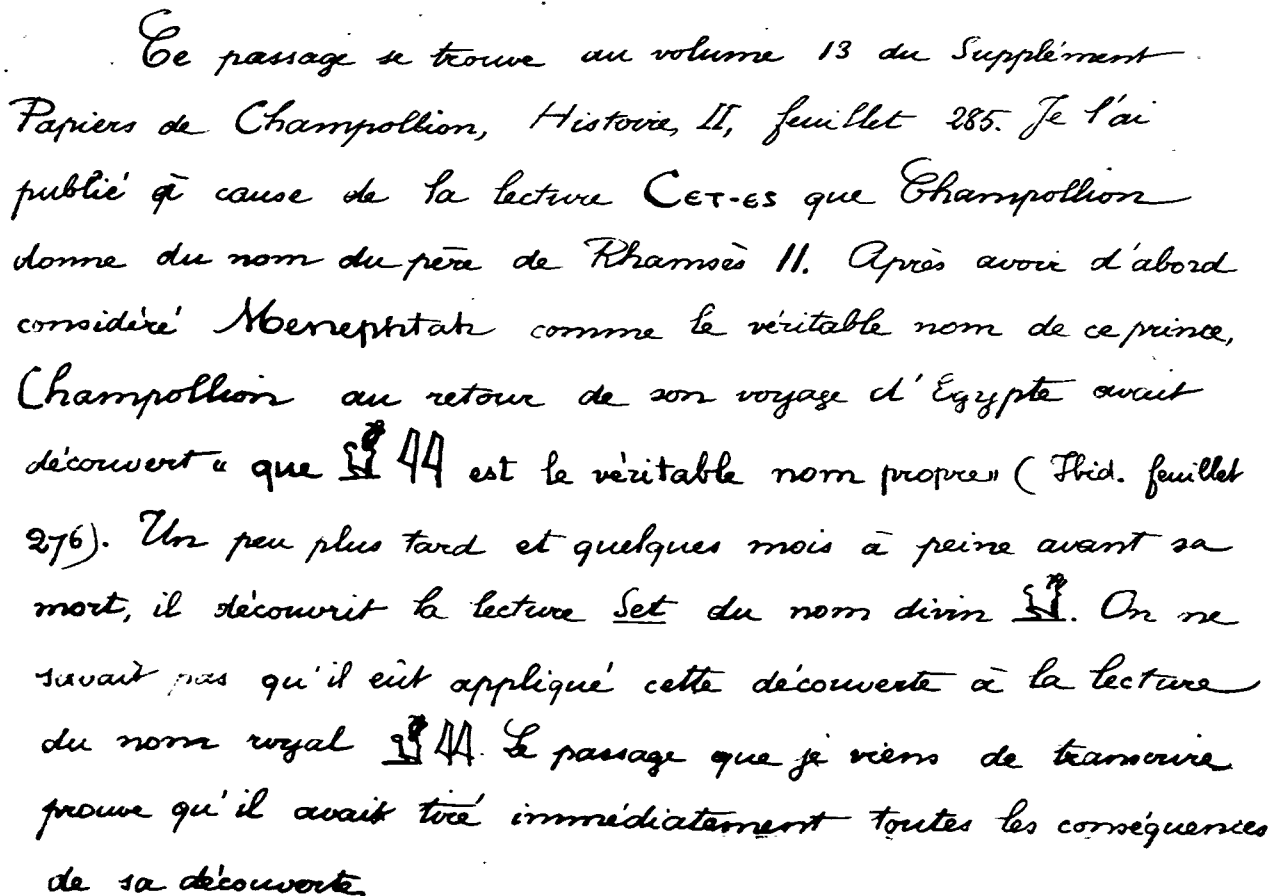 Ce passage se trouve au volume 13 du Supplément
Papiers de Champollion, Histoire, II, feuillet 285. Je l'ai
publié à cause de la lecture Cᴇᴛ-ᴇs que Champollion
donne du nom du père de Rhamsès II. Après avoir d'abord
considéré Menephtah comme le véritable nom de ce prince,
Champollion au retour de son voyage d'Egypte avait
découvert « que 𓁩𓇋𓇋 est le véritable nom propre» (Ibid. feuillet
276). Un peu plus tard et quelques mois à peine avant sa
mort, il découvrit la lecture Set du nom divin 𓁩. On ne
savait pas qu'il eût appliqué cette découverte à la lecture
du nom royal 𓁩𓇋𓇋. Le passage que je viens de transcrire
prouve qu'il avait tiré immédiatement toutes les conséquences
de sa découverte